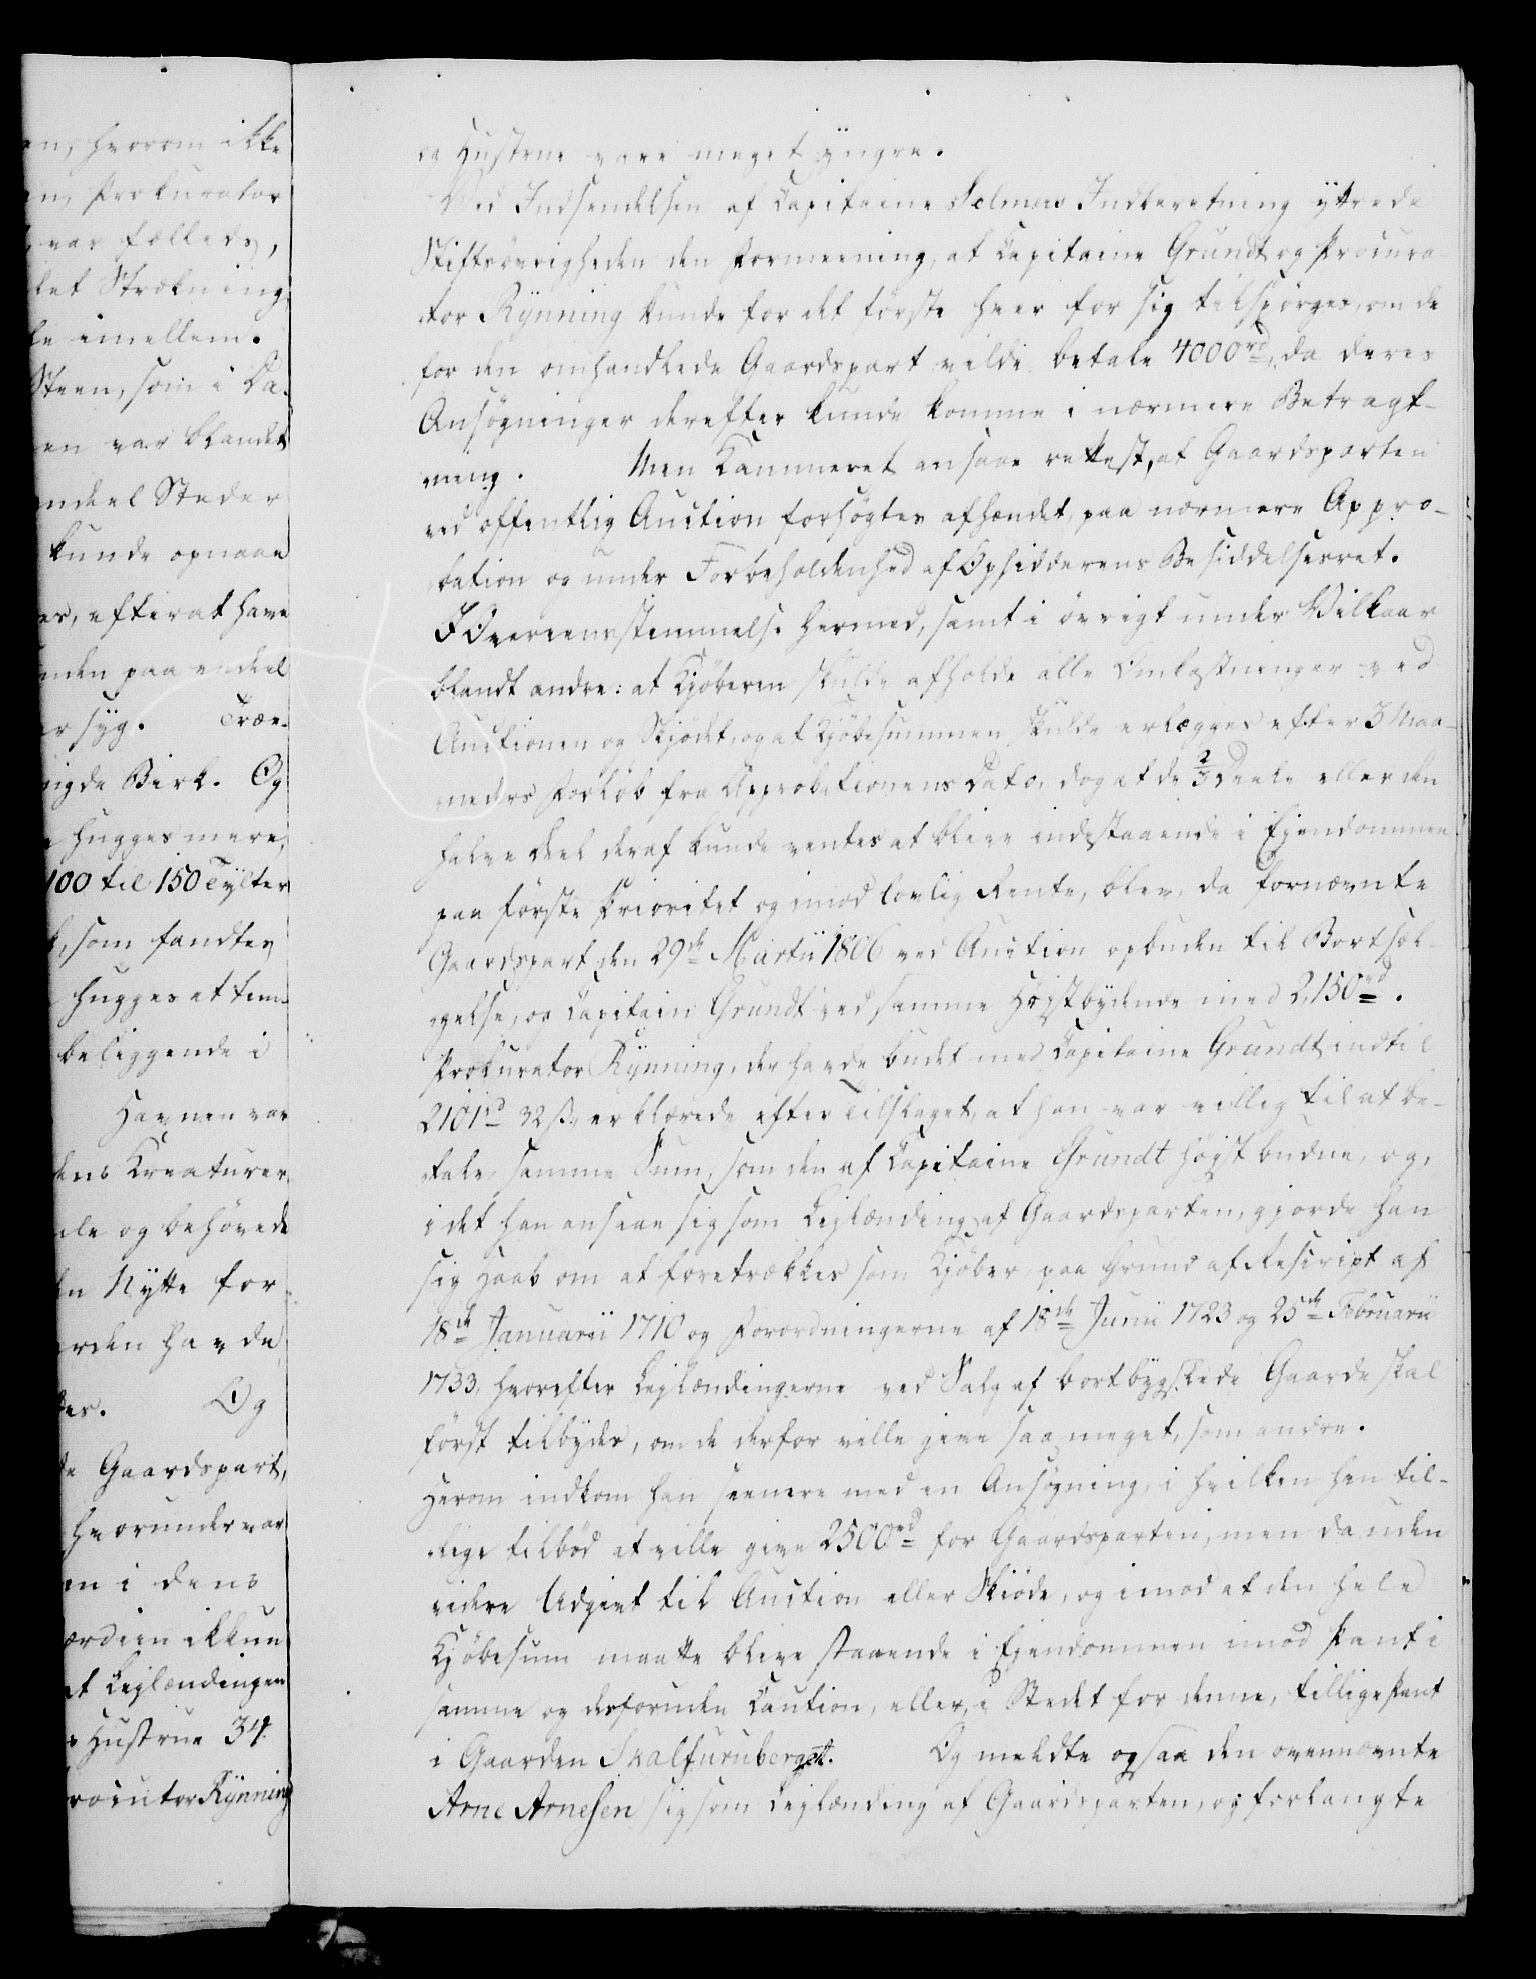 en, hvorom ikke
en, Prokurator
var fælleds,
let Strækning
le imellem.
Steen, som i Da-
en var blandet
endeel Steder
kunde opnaae
es, efterat have
nden paa endeel
er syg. Træe-
nigde Birk. Og
hugges mere,
100 til 150 Tylter
k, som fandtes
hugges at tem-
beliggende i
Havnen var
dens Kreaturer
ele og behövede
en Nytte for-
rden havde
des. Og
te Gaardspart,
hvorunder var
en i dens
ærdien ikkun
at Lejlændingen
s Hustrue 34.
rocutor Rÿnning
ca Hustrue være meget ÿngre.
Ved Indsendelsen af Capitaine Selmers Indberetning ÿttrede
Stiftsövrigheden den Formeening, at Capitaine Grundt og Procura-
tor Rÿnning kunde for det förste hver for sig tilspörges, om de
for den omhandlede Gaardspart vilde betale 4000rd, da deres
Ansögninger derefter kunde komme i nærmere Betragt-
ning. Men Kammeret ansaae rettest, at Gaardsparten
ved offentlig Auction forsögtes afhændet, paa nærmere Appro-
bation og under Forbeholdenhed af Opsidderens Besiddelsesret.
I Overeensstemmelse hermed, samt i övrigt under Vilkaar
blandt andre: at Kjöberen skulde afholde alle Omkostninger ved
Auctionen og Skjödet, og at Kjöbesummen skulde erlægges efter 3 Maa-
neders Forlöb fra Approbationens Dato, dog at de 2/3 Deele eller den
halve Deel deraf kunde ventes at blive indestaaende i Ejendommen
paa förste Prioritet og imod lovlig Rente, blev da fornævnte
Gaardspart den 29de Martii 1806 ved Auction opbuden til Bortsæl-
gelse, og Capitain Grundt ved samme Höjstbydende med 2,150rd.
Prokurator Rÿnning, der havde budet med Capitaine Grundt indtil
2101rd 32 ß, erklærede efter Tilslaget, at han var villig til at be-
tale samme Sum, som den af Capitaine Grundt höjst budne, og,
i det han ansaae sig som Lejlænding af Gaardsparten, gjorde han
sig Haab om at foretrækkes som Kjöber, paa Grund af Rescript af
18de Januarii 1710 og Forordningerne af 18de Junii 1723 og 25de Februarii
1733, hvorefter Lejlændingerne ved Salg af bortbygslede Gaarde skal
först tilbydes, om de derfor ville give saa meget, som andre.
Herom indkom han seenere med en Ansögning, i hvilken han til-
lige tilböd at ville give 2500rd for Gaardsparten, men da uden
videre Udgivt til Auction eller Skiöde, og imod at den hele
Kjöbesum maatte blive staaende i Ejendommen imod Pant i
samme og desforuden Caution, eller, i Stedet for denne, tillige Pant
i Gaarden Skalfuruberget. Og meldte ogsaa den ovennævnte
Arne Arnesen sig som Lejlænding af Gaardsparten, og forlangte